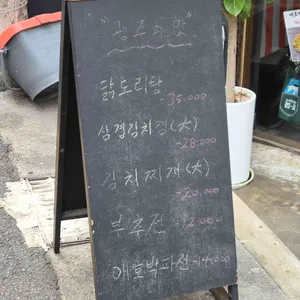 "광주의맛"
닭도리탕
-35.000
삼겹김치찜(大)
-28.000
김치찌개(大)
-20.000
부추전
-12.000
애호박파전 -14.000